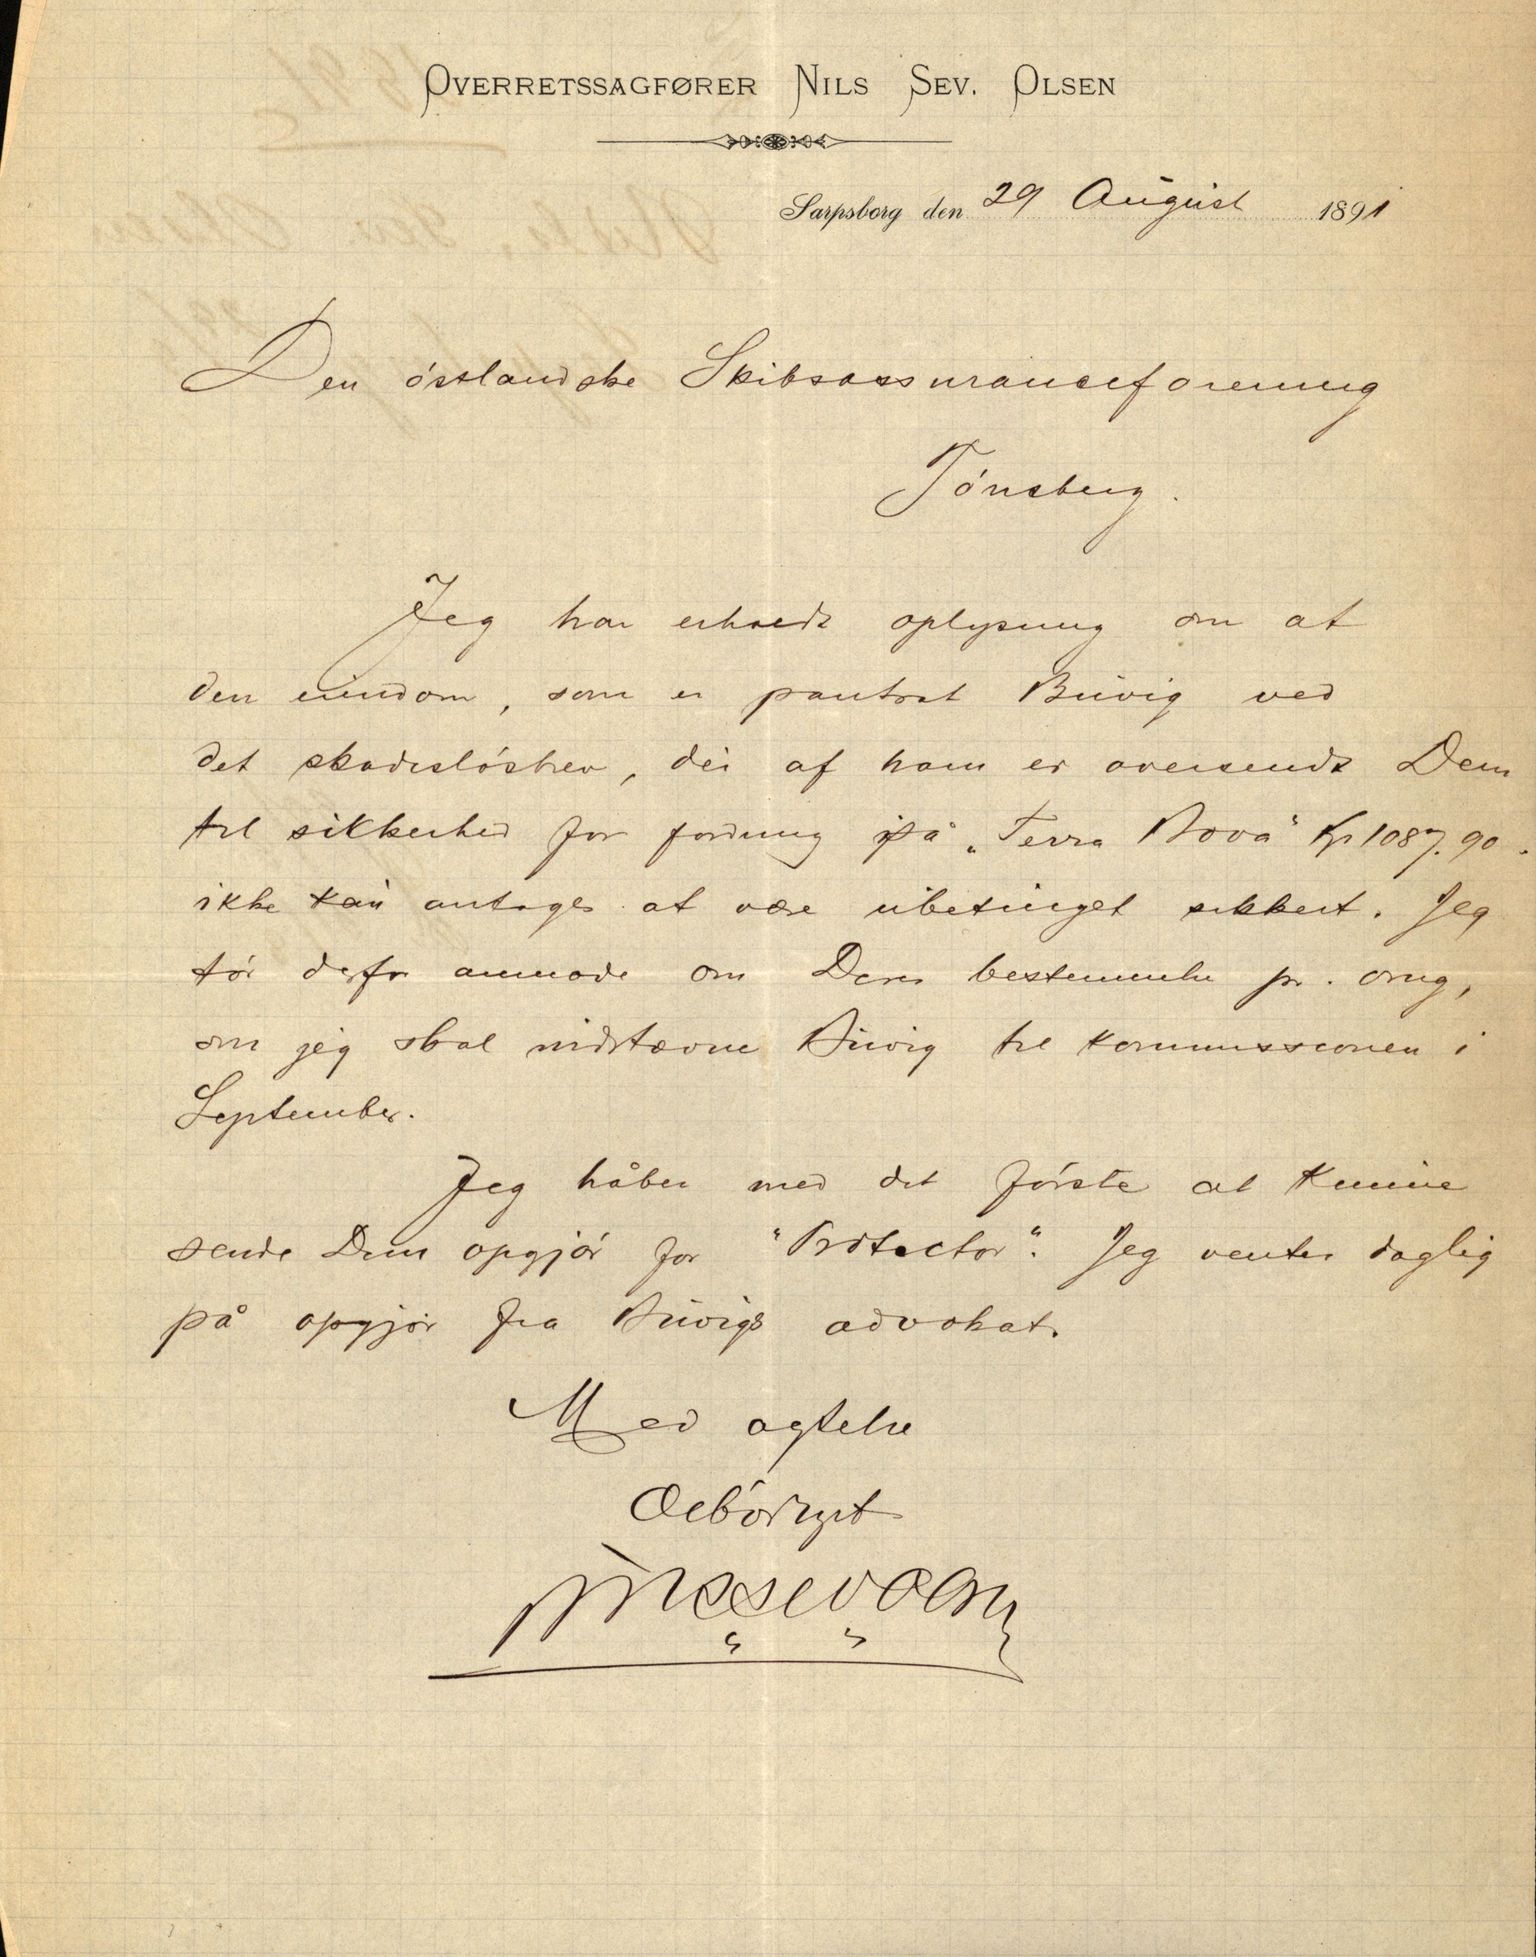 OVERRETSSAGFØRER NILS SEV. OLSEN
Sarpsborg den 29 August 1891
Den östlandske Skibsassuranceforening
Tönsberg.
Jeg har erholdt oplysning om at
den eiendom, som er pantsat Buvig ved
det skadeslösbrev, der af ham er oversendt Dem
til sikkerhed for fordring på „Terra Nova" Kr 1087.90.
ikke kan antages at være ubetinget sikkert. Jeg
tör derfor anmode om Deres bestemmelse pr. omg,
om jeg skal indstævne Buvig til kommissionen i
September.
Jeg håber med det förste at kunne
sende Dem opgjör for "Protector". Jeg venter daglig
på opgjör fra Buvigs advokat.
Med agtelse
Ærbödigst
Nils Sev Olsen